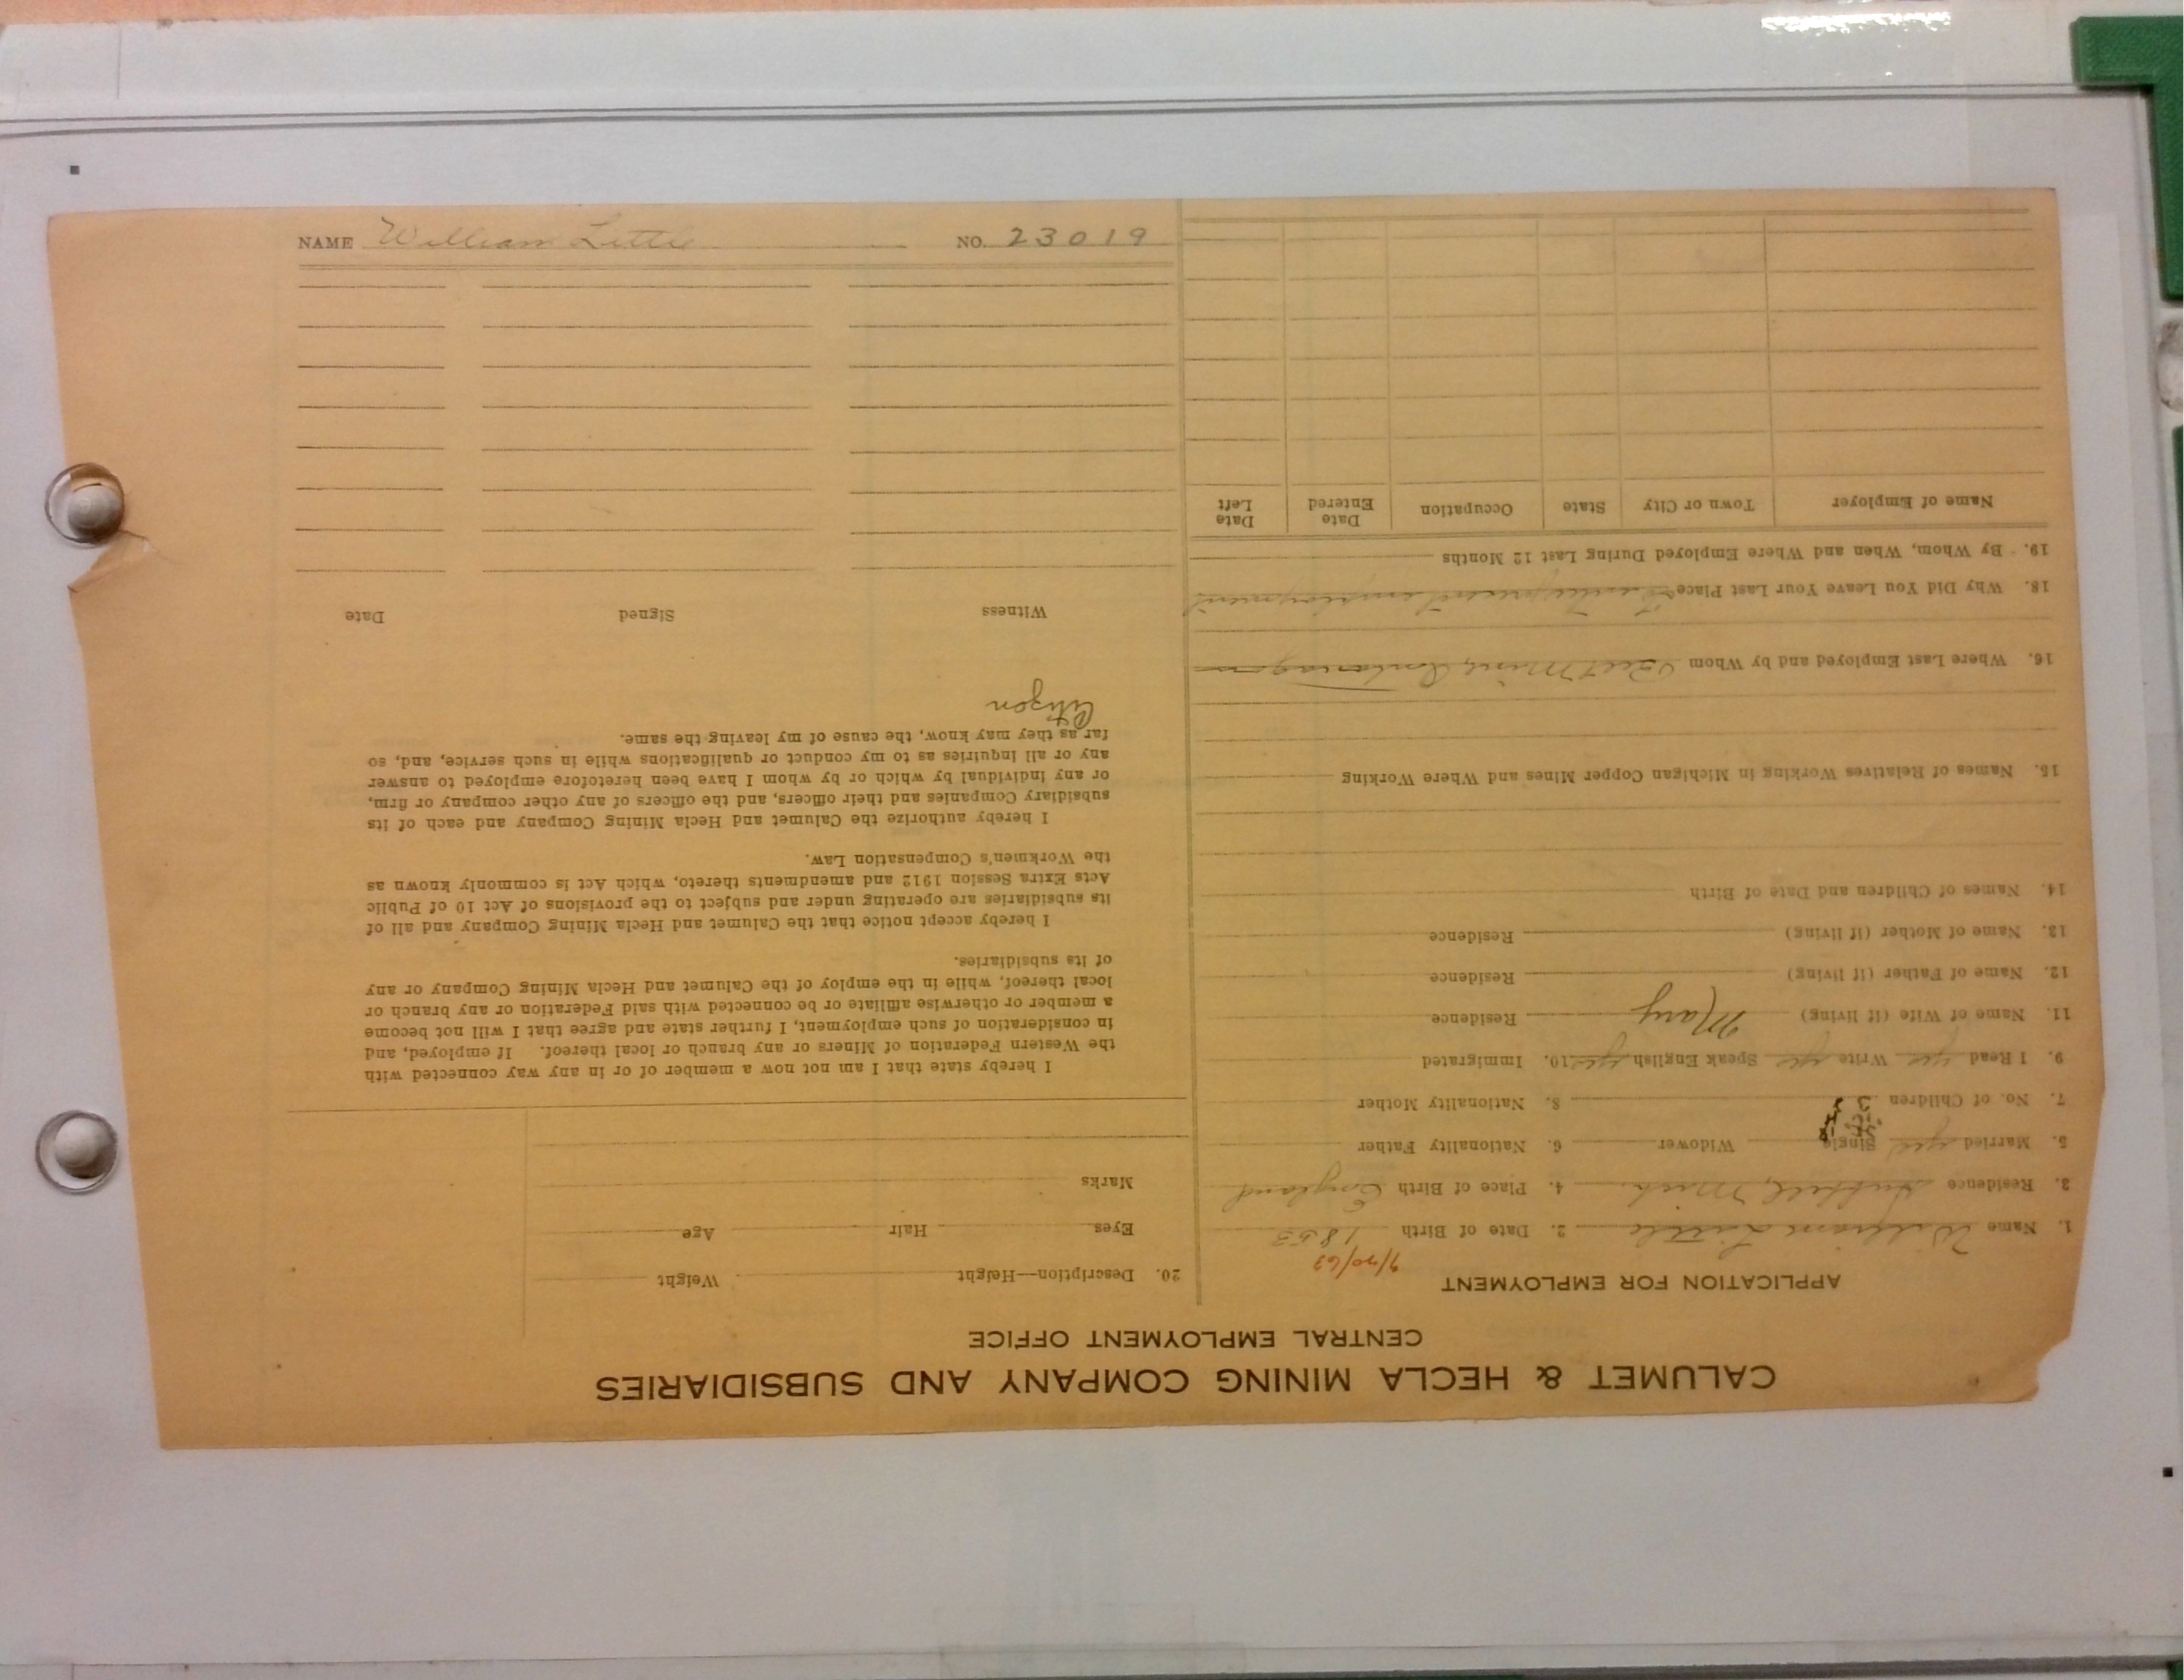 CALUMET & HECLA MINING COMPANY AND SUBSIDIARIES
CENTRAL EMPLOYMENT OFFICE
APPLICATION FOR EMPLOYMENT
1. Name William Little 2. Date of Birth 1853
3. Residence Hubbell, Mich. 4. Place of Birth England
5. Married yes Single Widower 6. Nationality Father
7. No. of Children 3 8. Nationality Mother
9. I Read yes Write yes Speak English yes 10. Immigrated
11. Name of Wife (if living) Mary Residence
12. Name of Father (if living) Residence
13. Name of Mother (if living) Residence
14. Names of Children and Date of Birth
15. Names of Relatives Working in Michigan Copper Mines and Where Working
16. Where Last Employed and by Whom Mine, Ontonagon
18. Why Did You Leave Your Last Place employment
19. By Whom, When and Where Employed During Last 12 Months
Name of Employer Town or City State Occupation Date Entered Date Left
20. Description—Height Weight
Eyes Hair Age
Marks
I hereby state that I am not now a member of or in any way connected with
the Western Federation of Miners or any branch or local thereof. If employed, and
in consideration of such employment, I further state and agree that I will not become
a member or otherwise affiliate or be connected with said Federation or any branch or
local thereof, while in the employ of the Calumet and Hecla Mining Company or any
of its subsidiaries.
I hereby accept notice that the Calumet and Hecla Mining Company and all of
its subsidiaries are operating under and subject to the provisions of Act 10 of Public
Acts Extra Session 1912 and amendments thereto, which Act is commonly known as
the Workmen's Compensation Law.
I hereby authorize the Calumet and Hecla Mining Company and each of its
subsidiary Companies and their officers, and the officers of any other company or firm,
or any individual by which or by whom I have been heretofore employed to answer
any or all inquiries as to my conduct or qualifications while in such service, and, so
far as they may know, the cause of my leaving the same.
Citizen
Witness Signed Date
NAME William Little NO. 23019